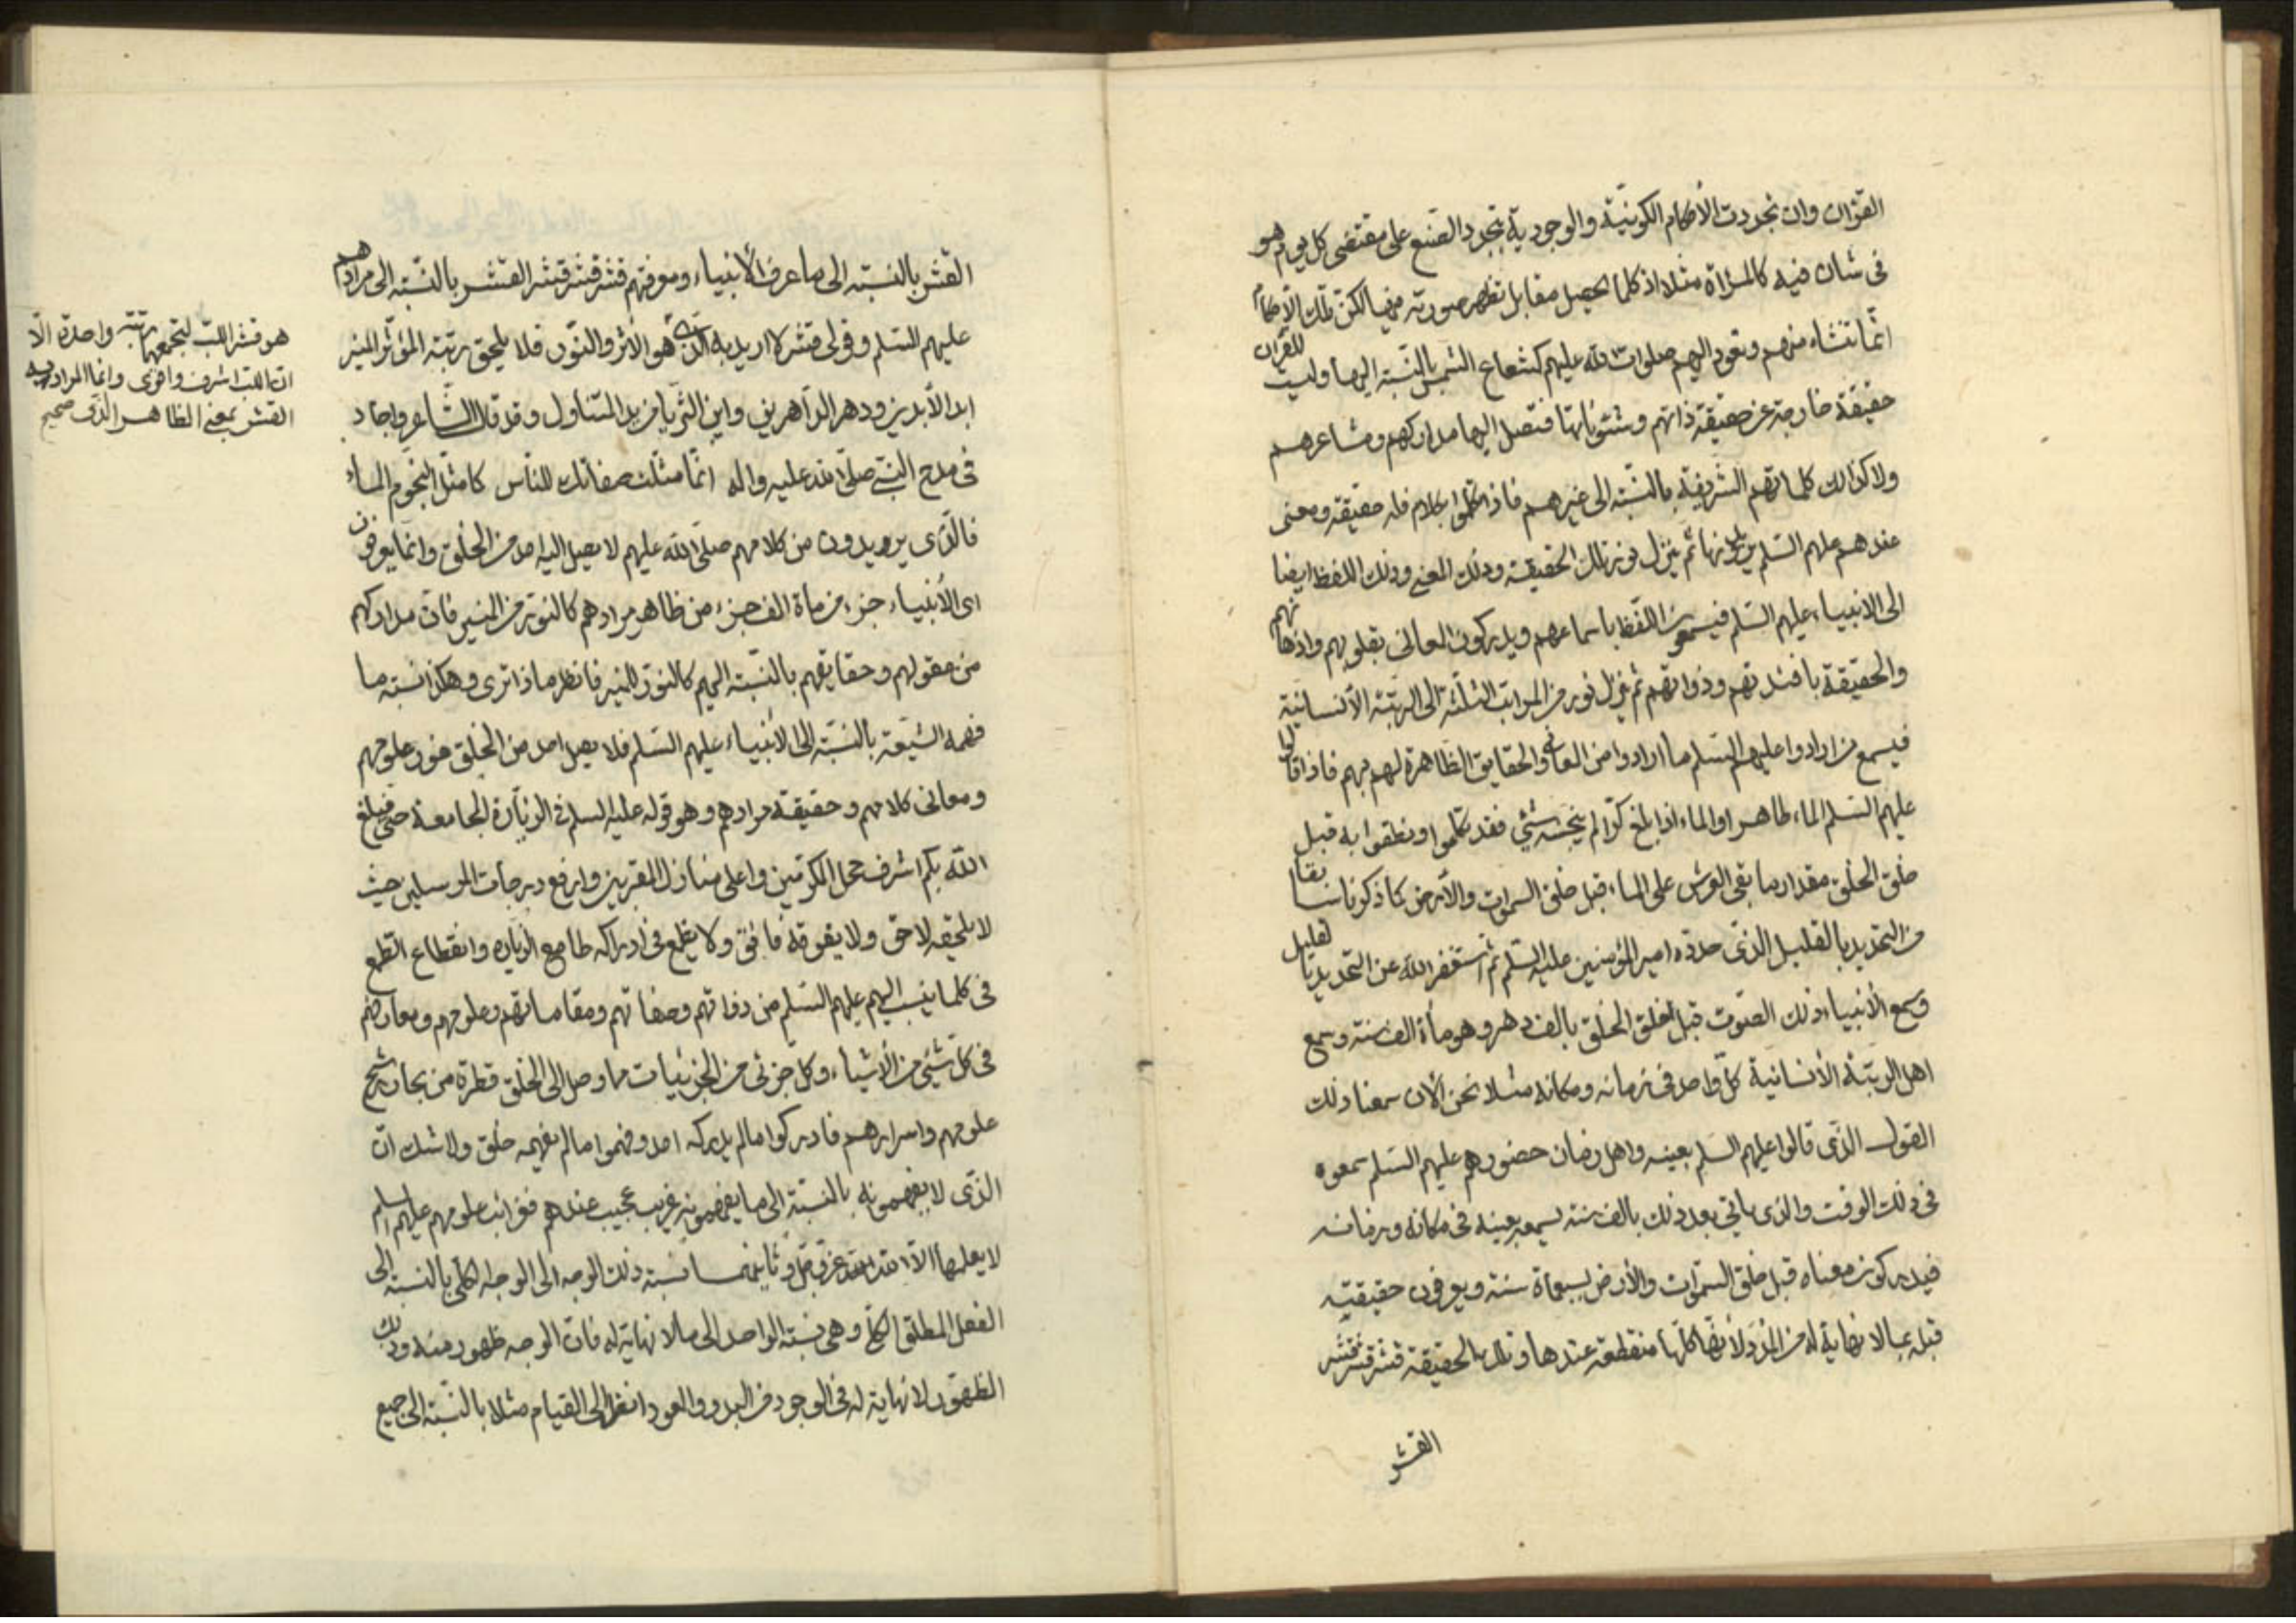 القران وان تجددت الأحكام الكونية والوجودية بتجدد الصنع على مقتضى كل يوم هو
فى شان فيه كالمرآة مثلا اذ كلما يحصل مقابل تظهر صورته فيها لكن تلك الأحكام
انما تنشاء منهم وتعود اليهم صلوات الله عليهم كشعاع الشمس بالنسبة اليها وليست للقران
حقيقة خارجة عن حقيقة ذاتهم وشئوناتها فتصل اليها مداركهم ومشاعرهم
ولا كذلك كلماتهم الشريفة بالنسبة الى غيرهم فاذا تكلموا بكلام فله حقيقة ومعنى
عندهم عليهم السلم ثم ينزل نور تلك الحقيقة وذلك المعنى وذلك اللفظ ايضا
الى الانبياء عليهم السلم فيسمعون اللفظ باسماعهم ويدركون المعانى بقلوبهم واذهانهم
والحقيقة بافئدتهم وذواتهم ثم ينزل نور من المراتب الثلثة الى الرتبة الانسانية
فيسمع من ارادوا عليهم السلم ما ارادوا من المعانى والحقايق الظاهرة لهم بهم فاذا قالوا
عليهم السلم الماء طاهر او الماء اذا بلغ كرا لم ينجسه شئ فقد تكلموا ونطقوا به قبل
خلق الخلق مقدار ما بقى العرش على الماء قبل خلق السموات والأرض كما ذكرنا سابقا
من التحديد بالقليل الذى حدده امير المؤمنين عليه السلم ثم استغفر الله عن التحديد بالقليل
وسمع الأنبياء ذلك الصوت قبل خلق الخلق بالف دهر وهو مأة الف سنة وسمع
اهل الرتبة الأنسانية كل واحد فى زمانه ومكانه مثلا نحن الأن سمعنا ذلك
القول الذى قالوا عليهم السلم بعينه واهل زمان حضورهم عليهم السلم سمعوه
فى ذلك الوقت والذى ياتى بعد ذلك بالف سنة يسمعه بعينه فى مكانه وزمانه
فيدركون معناه قبل خلق السموات والأرض بسبعمأة سنة ويعرفون حقيقته
قبله بما لا نهاية له من المدد لأنها كلها منقطعة عندها وتلك الحقيقة قشر قشر قشر
القشر
القشر بالنسبة الى ما عرف الأنبياء ومعرفتهم قشر قشر قشر القشر بالنسبة الى مرادهم
عليهم السلم وقولى قشر لا اريد به الذى هو الاثر والنور فلا يلحق رتبة المؤثر المنير
ابد الأبدين ودهر الداهرين واين الثريا من يد المتناول وقد قال الشاعر واجاد
فى مدح النبى صلى الله عليه واله انما مثلت صفاتك للناس كما مثل النجوم الماء
فالذى يريدون من كلامهم صلى الله عليهم لا يصل اليه احد من الخلق وانما يعرفون
اى الأنبياء جزء من مأة الف جزء من ظاهر مرادهم كالنور من المنير فان مداركهم
من عقولهم وحقايقهم بالنسبة اليهم كالنور للمنير فانظر ماذا ترى وهكذا نسبة ما
فهمه الشيعة بالنسبة الى الأنبياء عليهم السلم فلا يصل احد من الخلق غور علومهم
ومعانى كلامهم وحقيقة مرادهم وهو قوله عليه السلم فى الزيارة الجامعة حتى فبلغ
الله بكم اشرف محل المكرمين واعلى منازل المقربين وارفع درجات المرسلين حيث
لا يلحقه لاحق ولا يفوقه فائق ولا يطمع فى ادراكه طامع الزيارة وانقطاع الطمع
فى كلما ينسب اليهم عليهم السلم من ذواتهم وصفاتهم ومقاماتهم وعلومهم ومعارفهم
فى كل شئ من الأشياء وكل جزئى من الجزئيات مما وصل الى الخلق قطرة من بحار رشح
علومهم واسرارهم فادركوا ما لم يدركه احد وفهموا ما لم يفهمه خلق ولا شك ان
الذى لا يفهمونه بالنسبة الى ما يفهمونه غريب عجيب عندهم فغرائب علومهم عليهم السلم
لا يعلمها الا الله عز وجل وثانيهما نسبة ذلك الوجه الى الوجه الكلى بالنسبة الى
الفعل المطلق الكلى وهى نسبة الواحد الى ما لا نهاية له فان الوجه ظهور منه وذلك
الظهور لا نهاية له فى الوجود من البدو والعود انظر الى القيام مثلا بالنسبة الى جميع
هو قشر اللب ليجمعهما رتبة واحدة الا
ان اللب اشرف واقوى وانما المراد به
القشر بمعنى الظاهر الذى صحيح